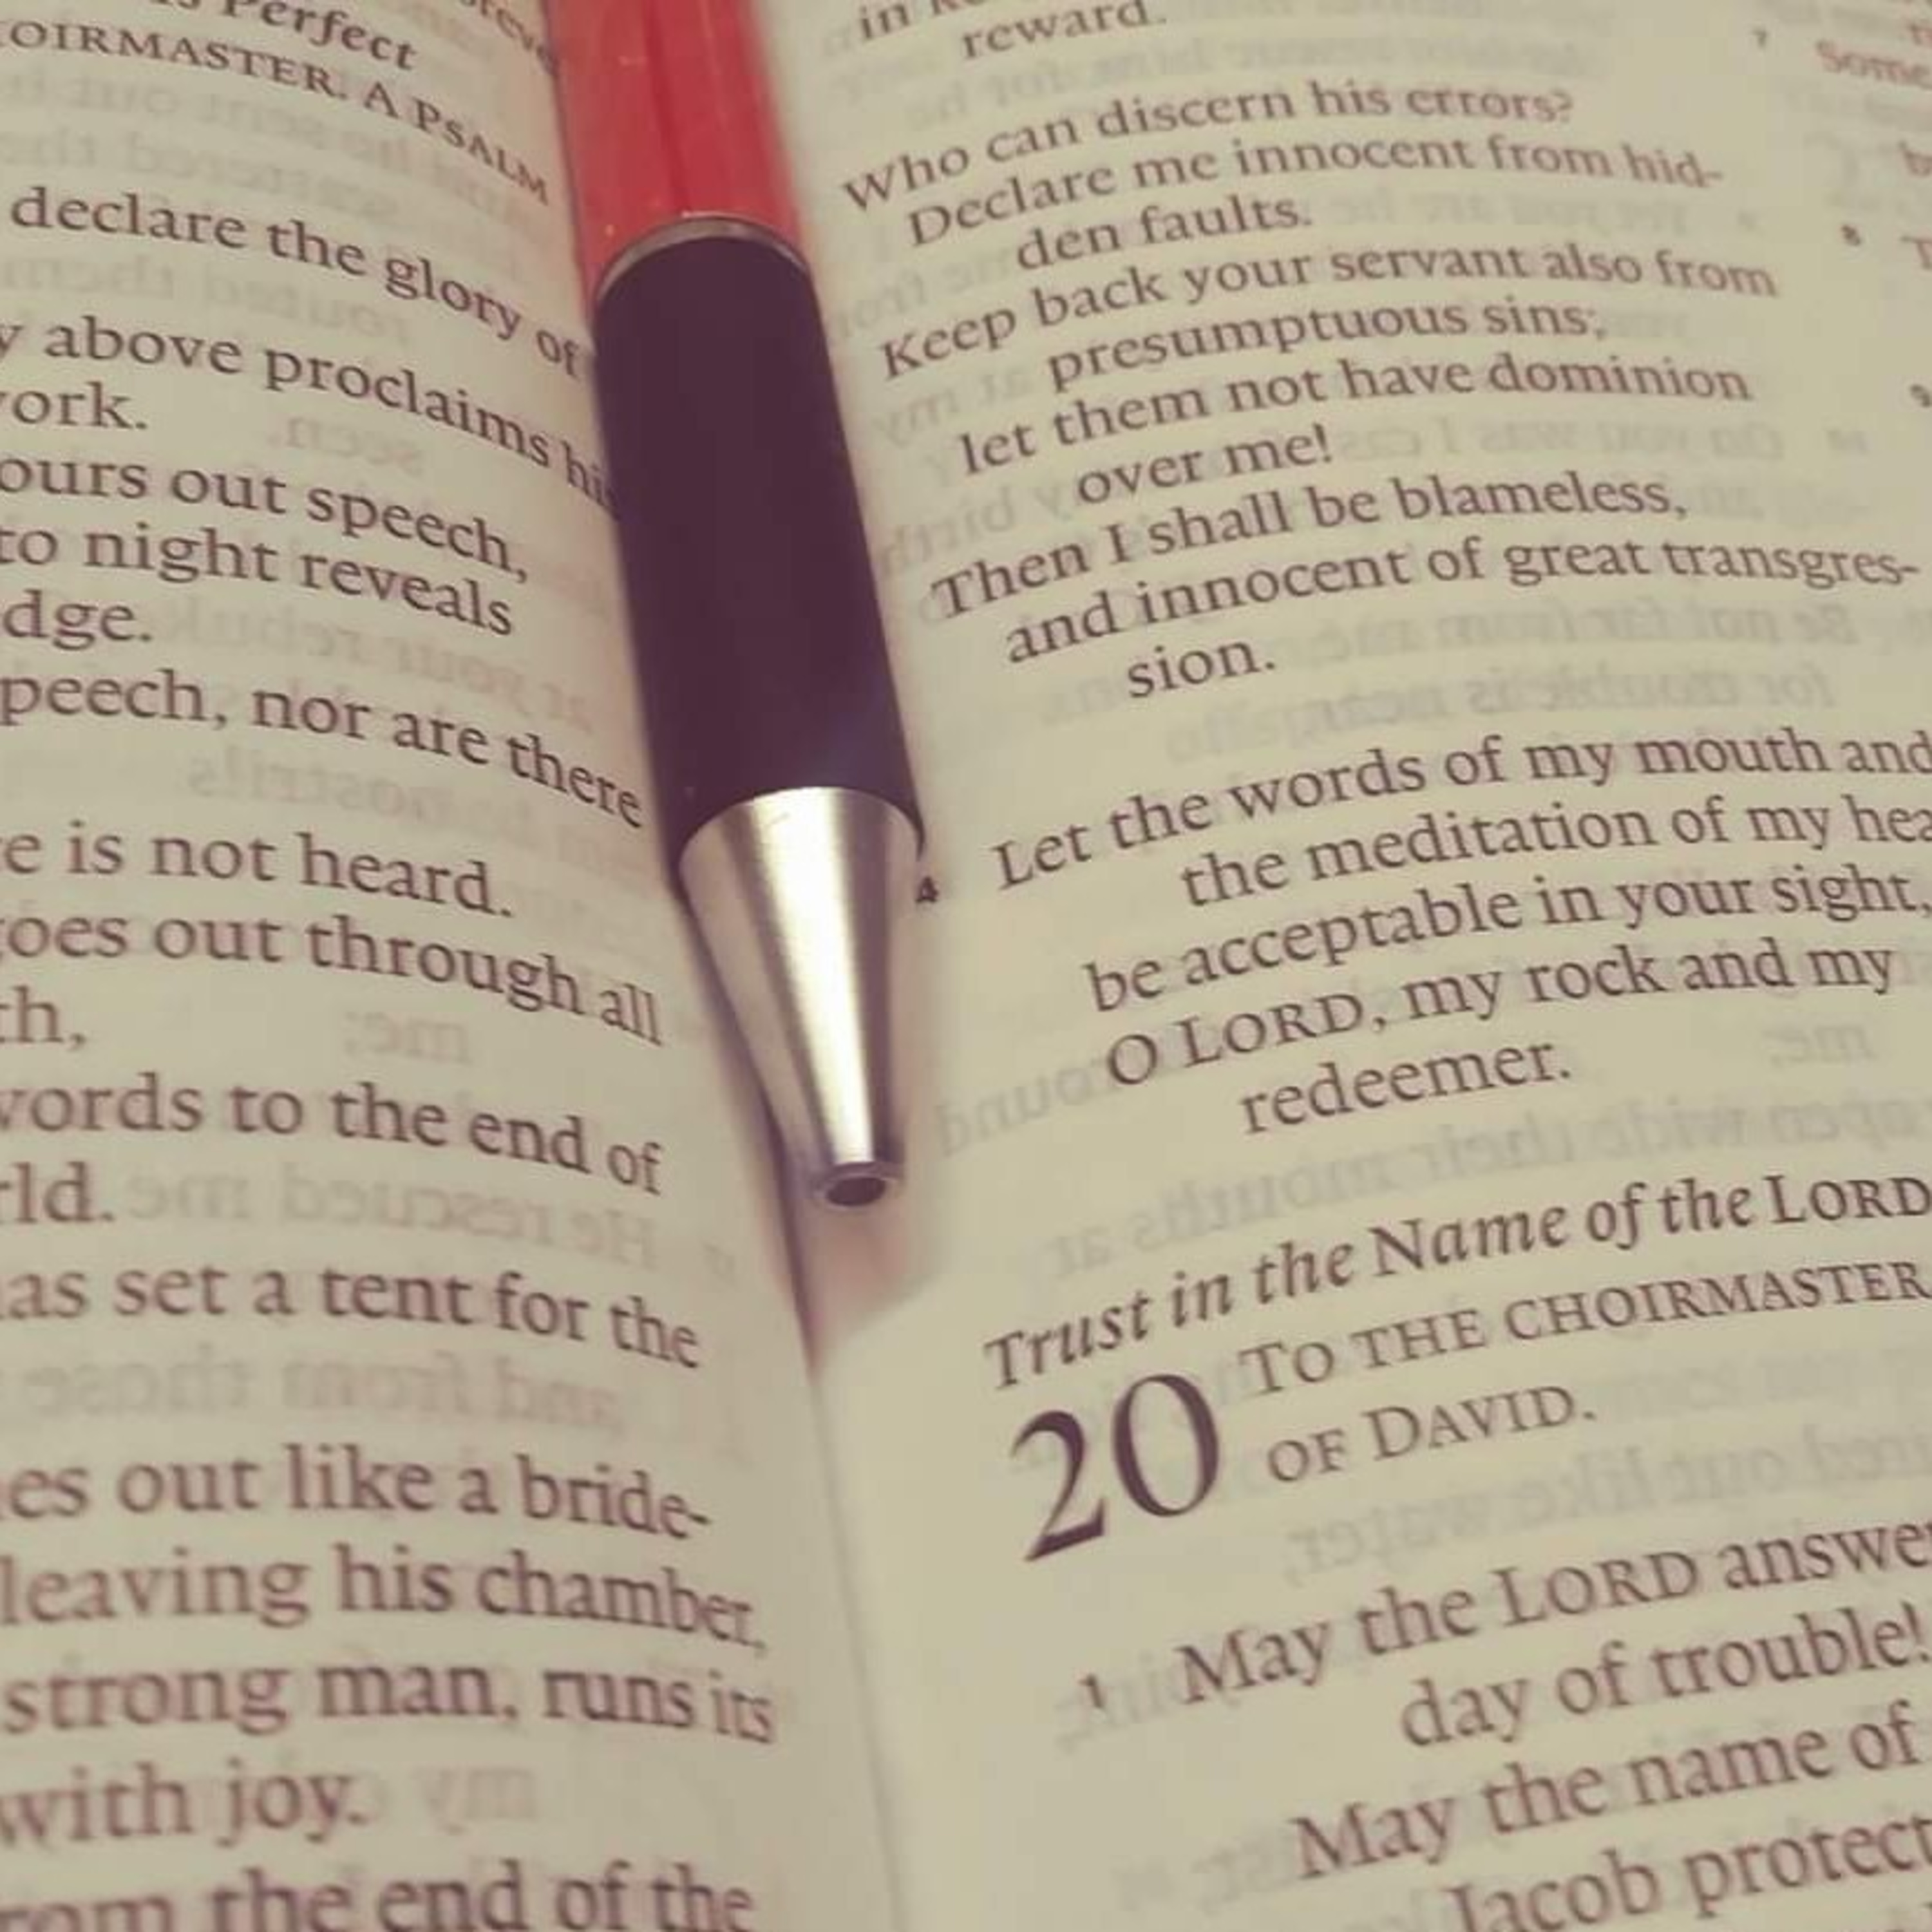 Perfect
OIRMASTER. A PSALM
declare the glory of
y above proclaims his
ork.
ours out speech,
to night reveals
dge.
peech, nor are there
e is not heard.
goes out through all
th,
words to the end of
rld.
as set a tent for the
es out like a bride-
leaving his chamber,
strong man, runs its
with joy.
rom the end of the
in
reward.
Who can discern his errors?
Declare me innocent from hid-
den faults.
Keep back your servant also from
presumptuous sins;
let them not have dominion
over me!
Then I shall be blameless,
and innocent of great transgres-
sion.
4 Let the words of my mouth and
the meditation of my hea
be acceptable in your sight,
O LORD, my rock and my
redeemer.
Trust in the Name of the LORD
20 TO THE CHOIRMASTER
OF DAVID.
1 May the LORD answe
day of trouble!
May the name of
Jacob protect
7 Some
8 T
9